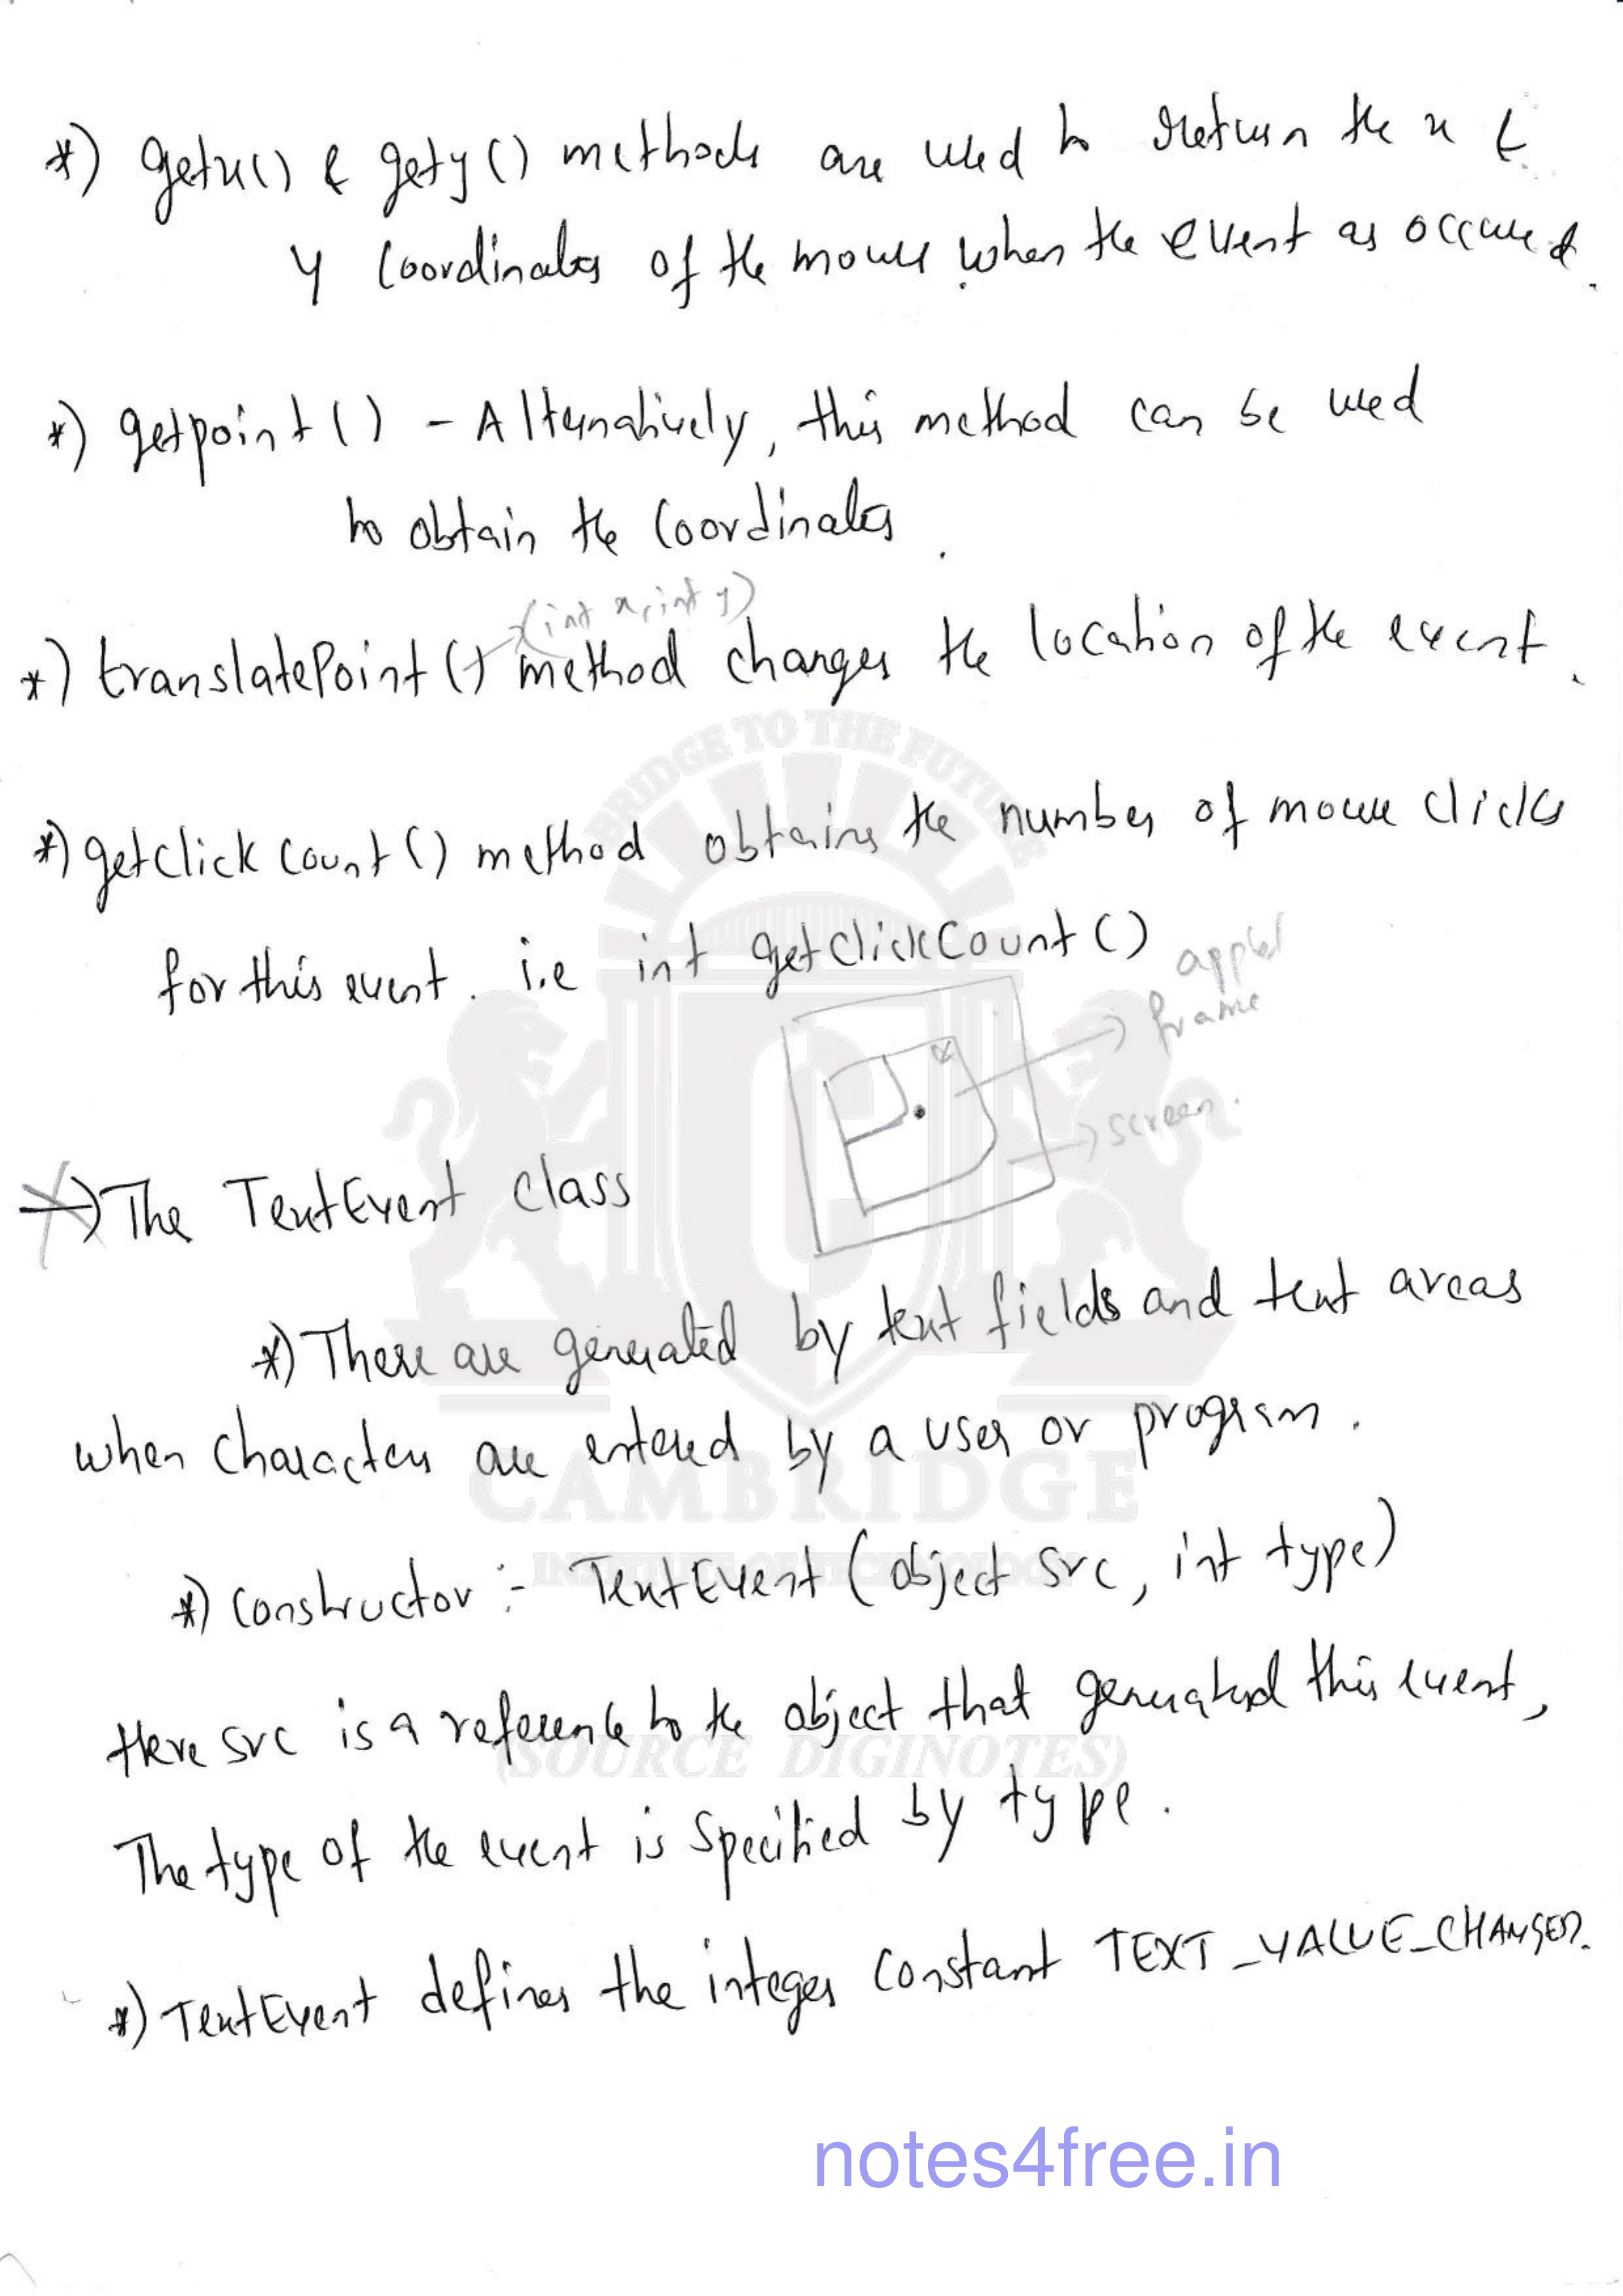 *) getx() & gety() methods are used to return the x &
y coordinates of the mouse when the event as occured.
*) getpoint() - Alternatively, this method can be used
to obtain the coordinates.
(int x, int y)
*) translatePoint() method changes the location of the event.
*) getclick count() method obtains the number of mouse clicks
for this event. i.e int getclickCount()
applet
frame
screen.
→) The TextEvent class
*) These are generated by text fields and text areas
when characters are entered by a user or program.
*) constructor :- TextEvent (object src, int type)
Here src is a reference to the object that generated this event,
The type of the event is specified by type.
*) TextEvent defines the integer constant TEXT_VALUE_CHANGED.
BRIDGE TO THE FUTURE
CAMBRIDGE
INSTITUTE OF TECHNOLOGY
(SOURCE DIGINOTES)
notes4free.in